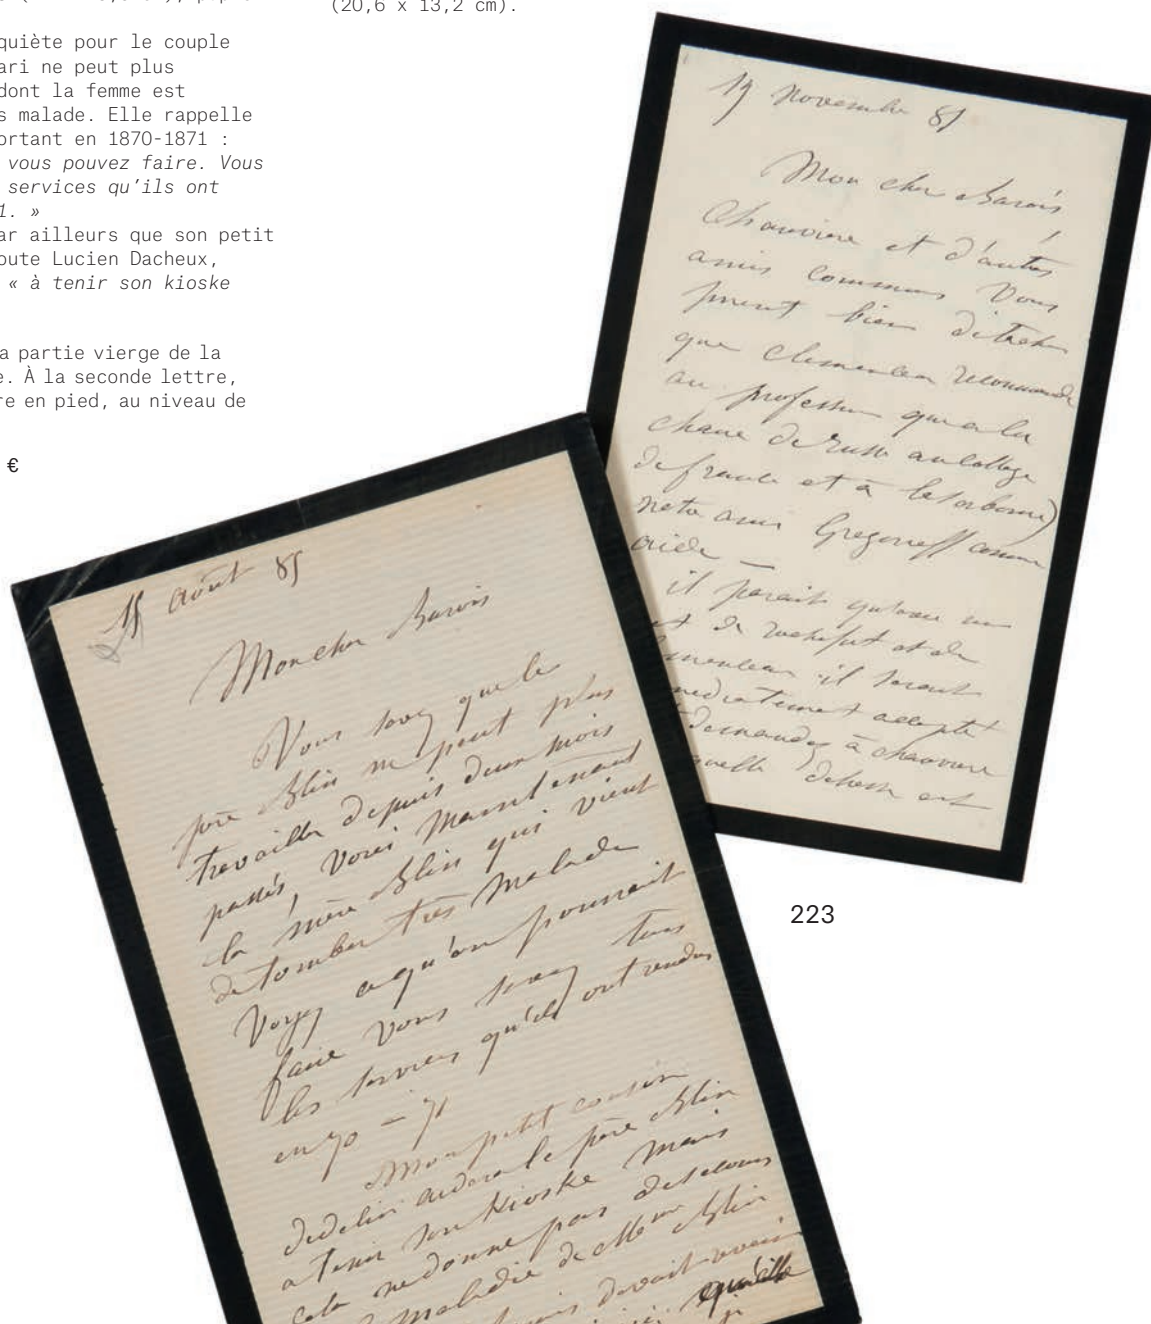 (20,6 x 13,2 cm).
quiète pour le couple
ari ne peut plus
dont la femme est
s malade. Elle rappelle
ortant en 1870-1871 :
vous pouvez faire. Vous
services qu'ils ont
1. »
ar ailleurs que son petit
oute Lucien Dacheux,
« à tenir son kioske
a partie vierge de la
e. À la seconde lettre,
re en pied, au niveau de
€
novembre 85
Mon cher Barois
Chauviere et d'autres
amis communs vous
prient bien
que Clemenceau recommande
au professeur qui a la
chaire de russe au college
de france et à la sorbonne)
notre ami Gregoreff comme
aide —
il parait qu'avec un
t de rochefort et de
menceau il serait
mediatement accepté
demandez à chauviere
quelle adresse est
223
15 Août 85
Mon cher Barois
Vous savez que le
père Blin ne peut plus
travailler depuis deux mois
passés, voici maintenant
la mère Blin qui vient
de tomber très malade
Voyez ce qu'on pourrait
faire vous savez tous
les services qu'ils ont rendus
en 70 — 71
Mon petit cousin
dedelin aidera le père Blin
a tenir son Kioske mais
cela ne donne pas de secours
maladie de Mme Blin
devait avoir
qu'elle